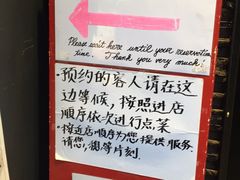 Please wait here until your reservation
time. Thank you very much!
预约的客人请在这
边等候，按照进店
顺序依次进行点菜
·按进店顺序为您提供服务.
请您，稍等片刻.